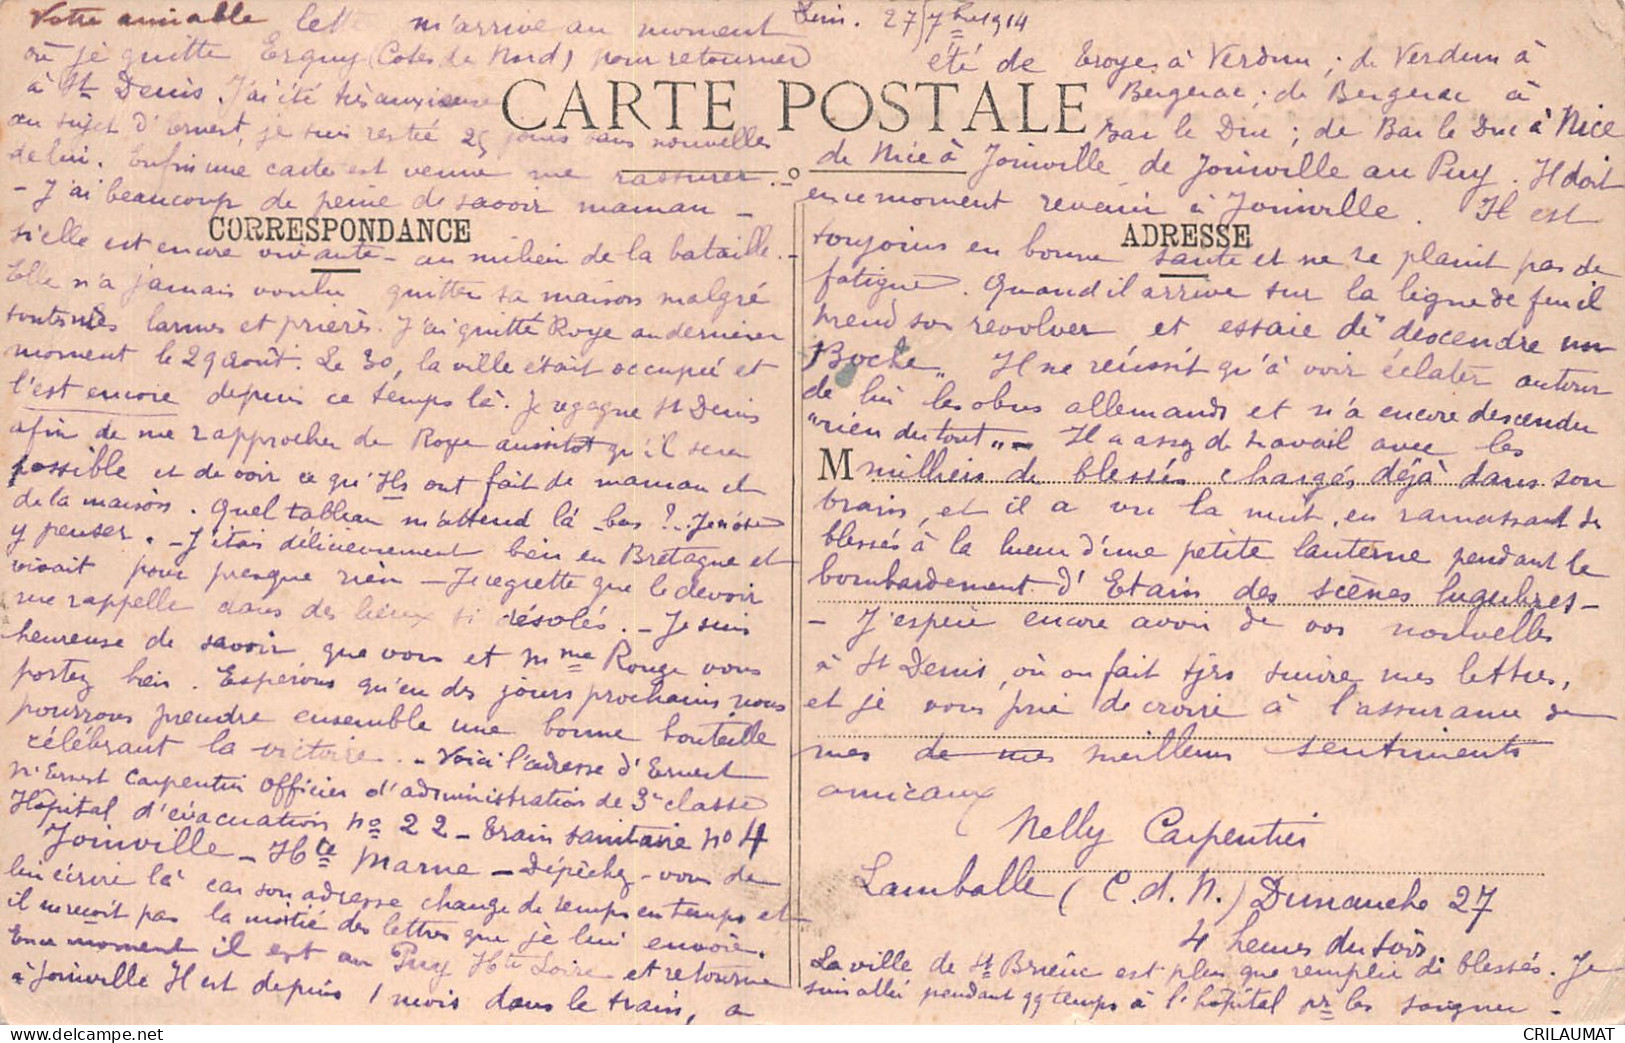 Votre aimable lettre m'arrive au moment
où je quitte Erquy (Cotes du Nord) pour retourner
à St Denis. J'ai été très anxieuse
au sujet d'Ernest, je suis restée 25 jours sans nouvelles
de lui. Enfin une carte est venue me rassurer. -
- J'ai beaucoup de peine de savoir maman -
si elle est encore vivante - au milieu de la bataille. -
Elle n'a jamais voulu quitter sa maison malgré
toutes mes larmes et prières. J'ai quitté Roye au dernier
moment le 29 août. Le 30, la ville était occupée et
l'est encore depuis ce temps là. Je regagne St Denis
afin de me rapprocher de Roye aussitôt qu'il sera
possible et de voir ce qu'Ils ont fait de maman et
de la maison. Quel tableau m'attend là-bas ? - Je n'ose
y penser. - J'étais délicieusement bien en Bretagne et
vivait pour presque rien - Je regrette que le devoir
me rappelle dans des lieux si désolés. - Je suis
heureuse de savoir que vous et Mme Rouge vous
portez bien. Espérons qu'en des jours prochains nous
pourrons prendre ensemble une bonne bouteille
célébrant la victoire. - Voici l'adresse d'Ernest
Mr Ernest Carpentier Officier d'administration de 3e classe
Hôpital d'évacuation no 22 - Train sanitaire no 4
Joinville - Hte Marne - Dépêchez-vous de
lui écrire là car son adresse change de temps en temps et
il ne reçoit pas la moitié des lettres que je lui envoie.
En ce moment il est au Puy Hte Loire et retourne
à Joinville Il est depuis 1 mois dans le train, a
27/7bre 1914
CARTE POSTALE
CORRESPONDANCE
ADRESSE
été de Troyes à Verdun ; de Verdun à
Bergerac ; de Bergerac à
Bar le Duc ; de Bar le Duc à Nice
de Nice à Joinville de Joinville au Puy. Il doit
en ce moment revenir à Joinville. Il est
toujours en bonne santé et ne se plaint pas de
fatigue. Quand il arrive sur la ligne de feu il
prend son revolver et essaie de "descendre un
Boche". Il ne réussit qu'à voir éclater autour
de lui les obus allemands et n'a encore descendu
"rien du tout" - Il a assez de travail avec les
M milliers de blessés chargés déjà dans son
train, et il a vu la nuit, en ramassant des
blessés à la lueur d'une petite lanterne pendant le
bombardement d'Etain des scènes lugubres -
- J'espère encore avoir de vos nouvelles
à St Denis, où on fait tjrs suivre mes lettres,
et je vous prie de croire à l'assurance de
mes de mes meilleurs sentiments
amicaux
Nelly Carpentier
Lamballe (C. d. N.) Dimanche 27
4 heures du soir
La ville de St Brieuc est plus que remplie de blessés. Je
suis allée pendant qq temps à l'hôpital pr les soigner -
CRILAUMAT